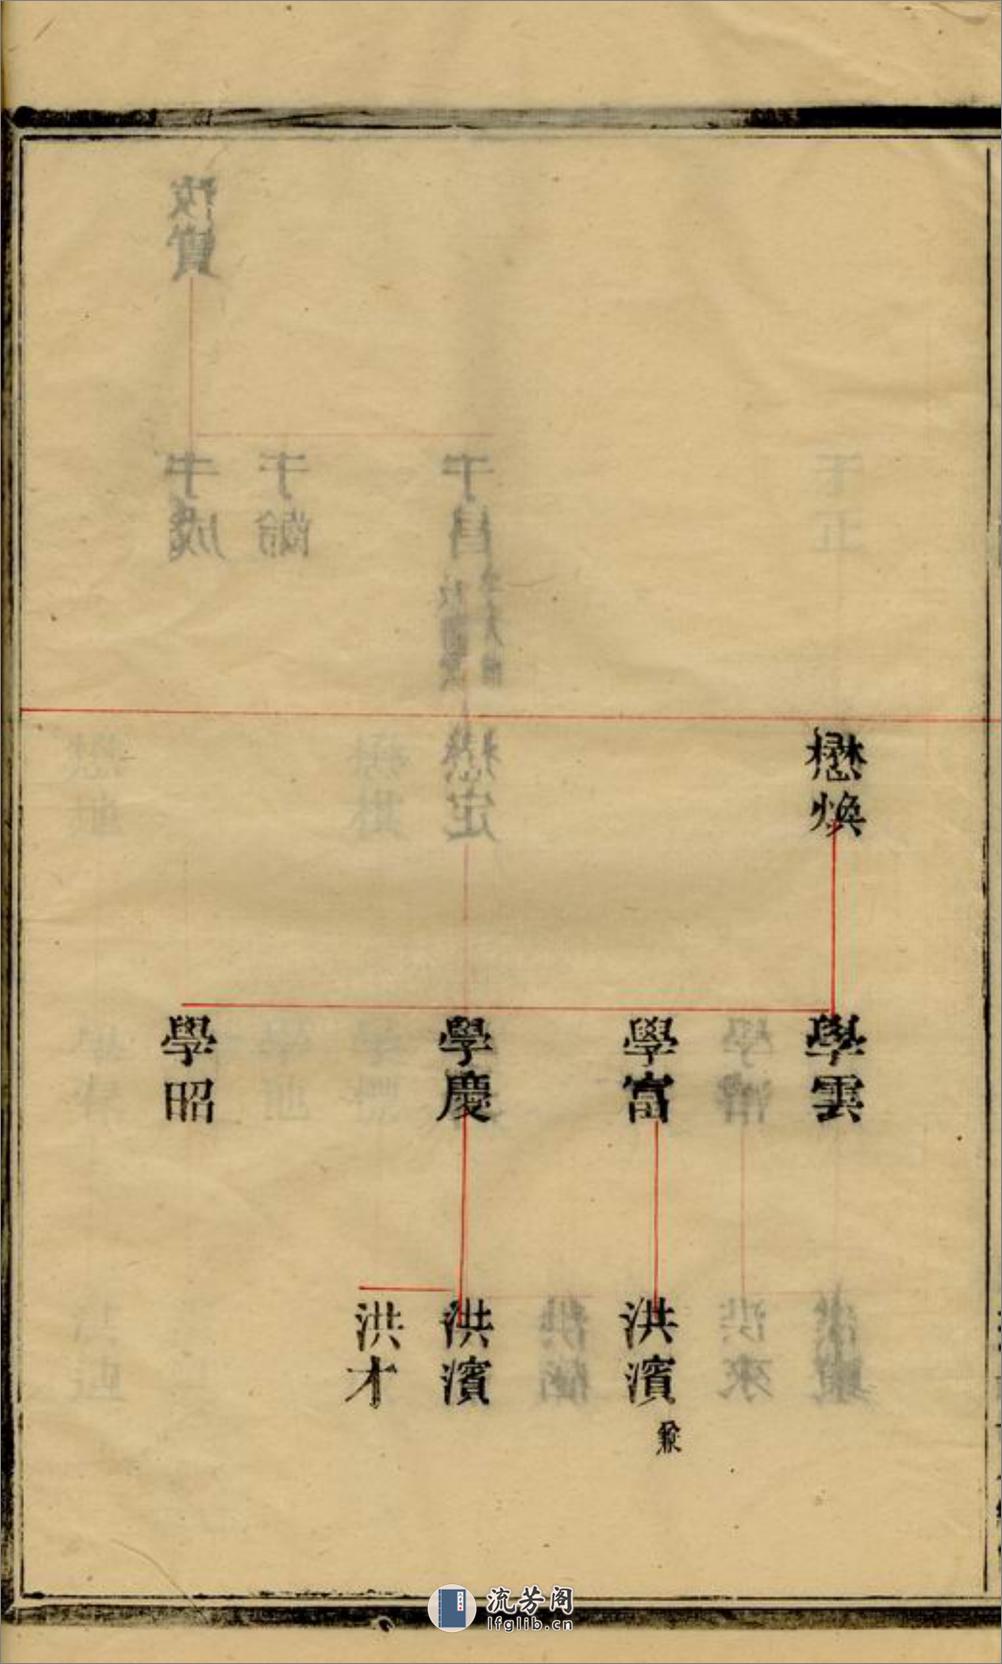 懋煥
學雲
學富
洪濱
學慶
洪濱
洪才
學昭
流芳阁
lfglib.cn